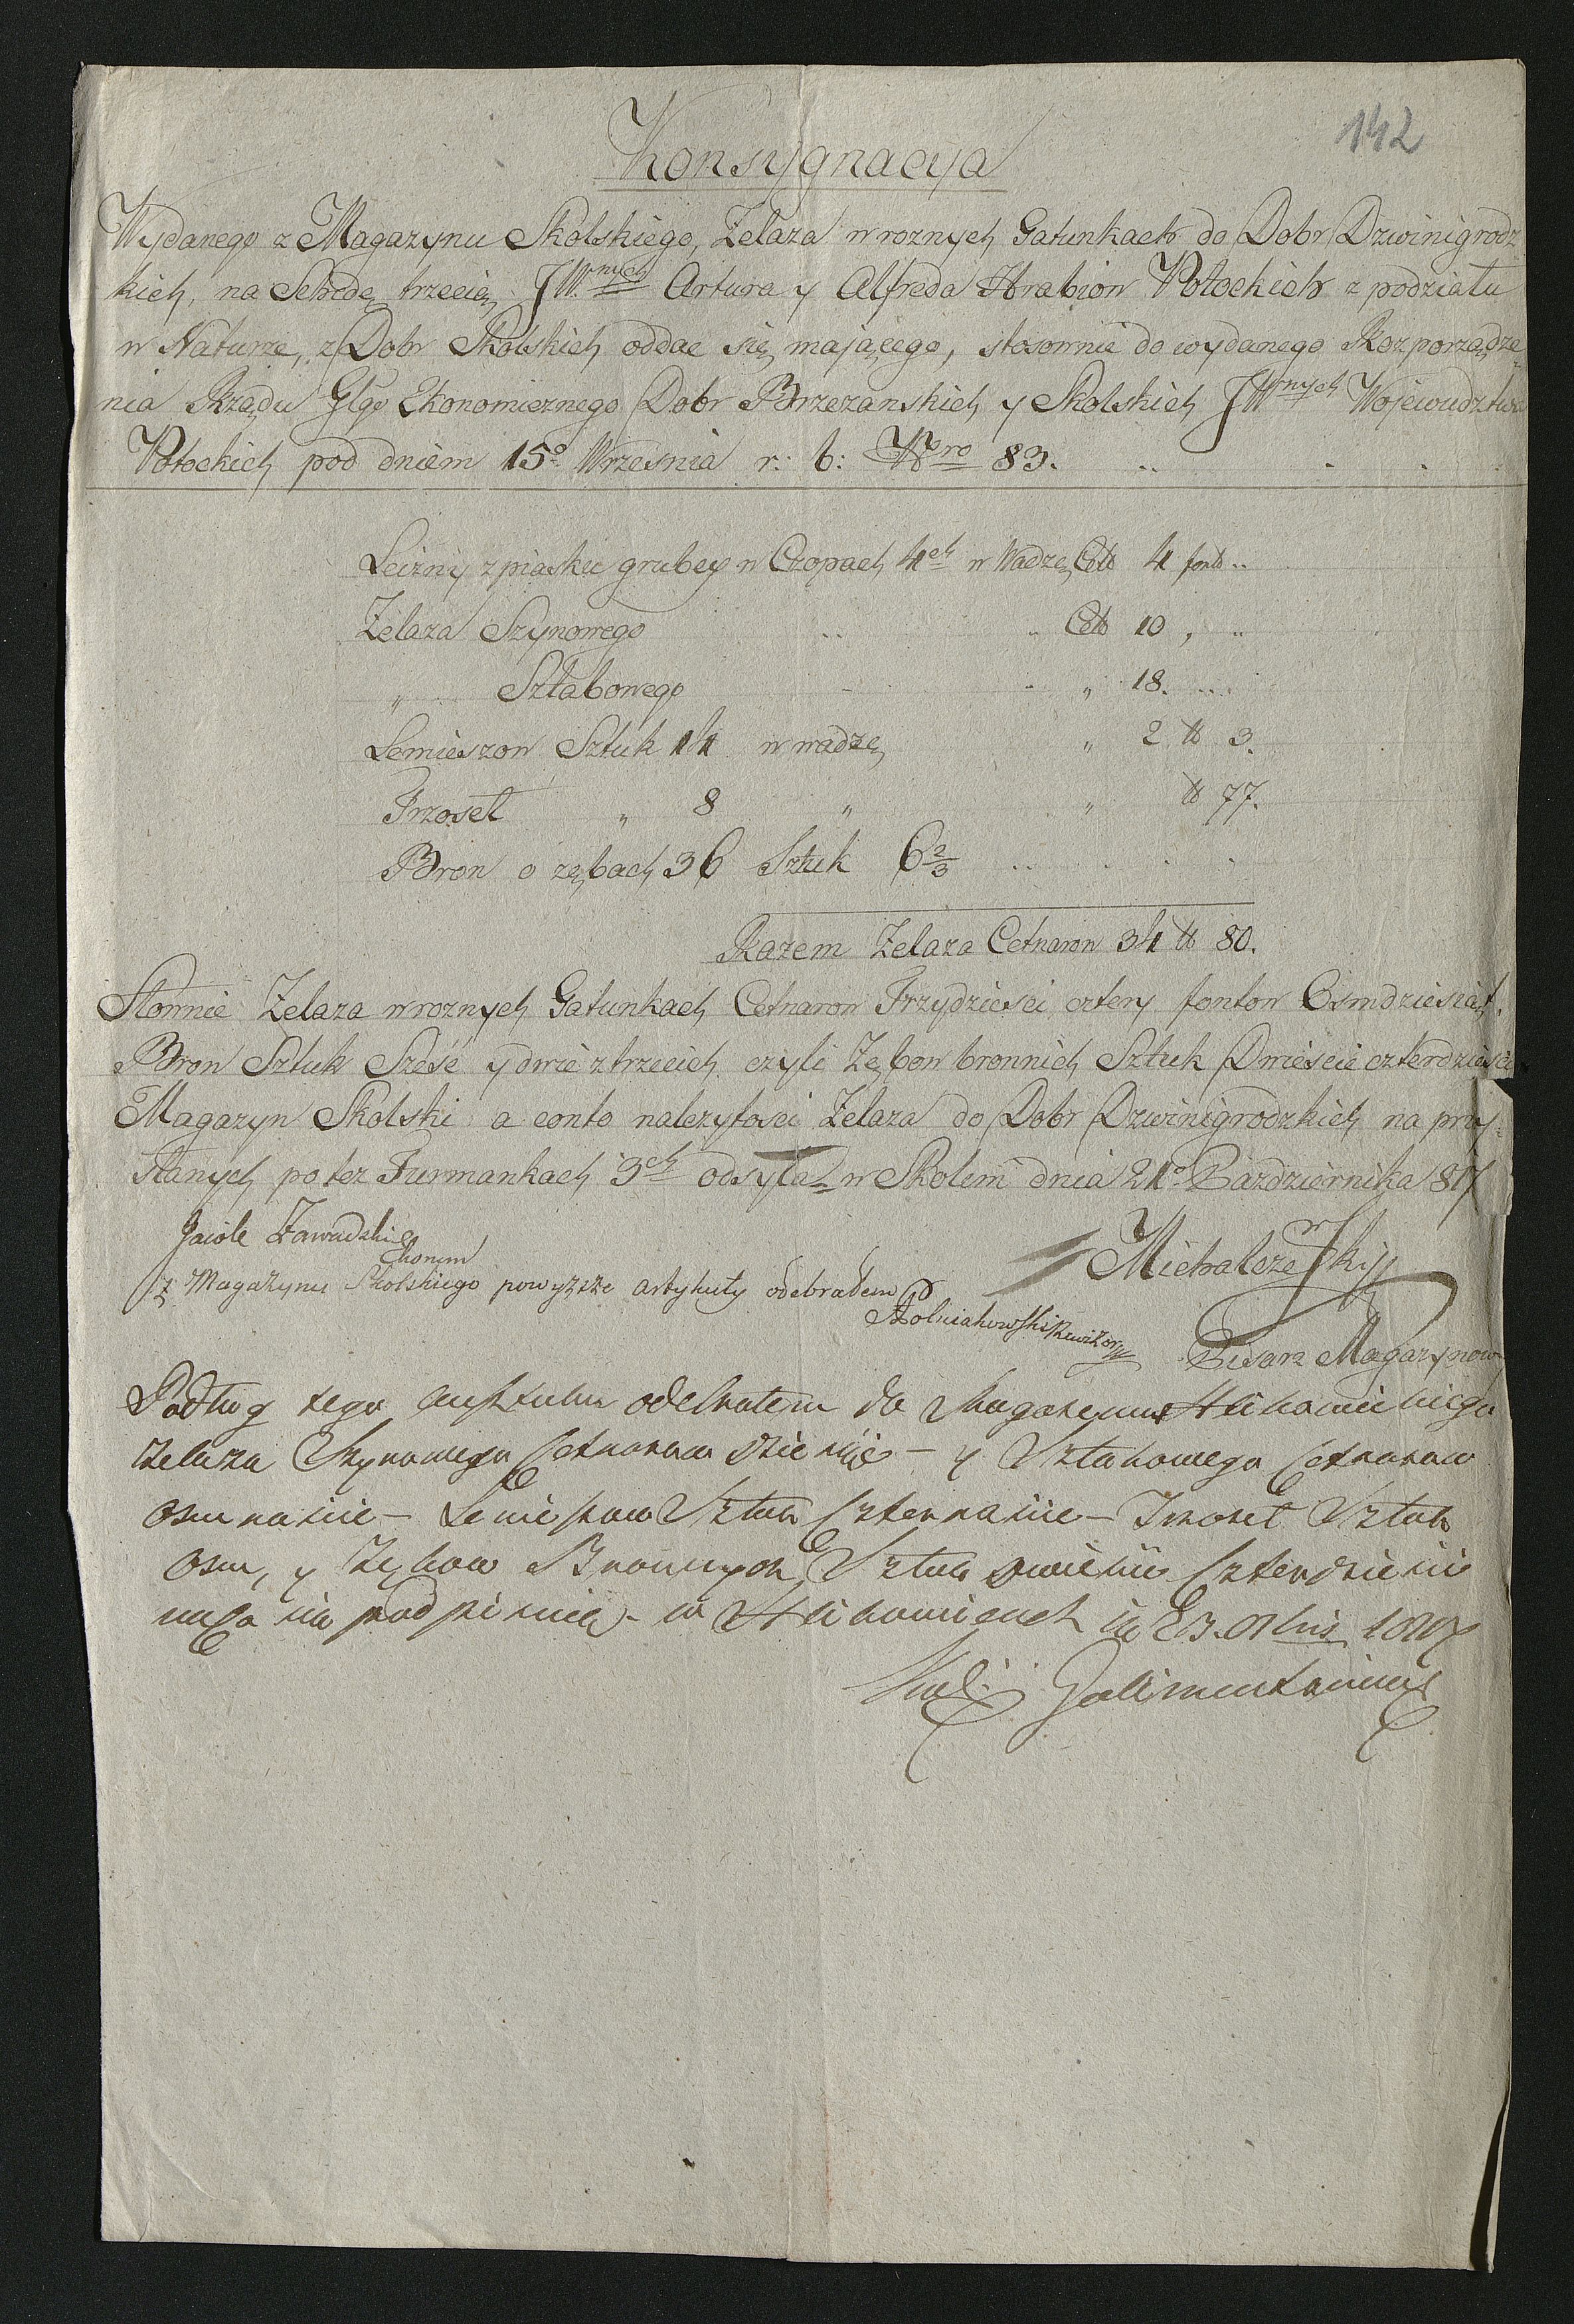 142
Konsygnacya
Wydanego z Magazynu Skolskiego, Zelaza w roznych Gatunkach do Dobr Dzwinigrodz
kich, na Schedę trzecią JW.nych Artura y Alfreda Hrabiow Potockich z podziału
w Naturze, z Dobr Skolskich oddac się maiącego, stosownie do wydanego Rozporządze
nia Rządu Głgo Ekonomicznego Dobr Brzezanskich y Skolskich JWnych Wojewudztwa
Potockich pod dniem 15o Wrzesnia r: b: Nro 83.
Leizny z piasku grubey w Czopach 4ch w Wadze Cet 4 font ..
Zelaza Szynowego .. .. Cet 10 , ..
„ Sztabowego .. „ 18. ...
Lemieszow Sztuk 14 w wadze „ 2 ℔ 3.
Trzoseł „ 8 „ „ ℔ 77.
Bron o zębach 36 Sztuk 6 2/3 ..
Razem Zelaza Cetnarow 34 ℔ 80.
Słownie Zelaza w roznych Gatunkach Cetnarow Trzydziesci cztery fontow Osmdziesiąt.
Bron Sztuk Sześć y dwie z trzecich czyli Zębow bronnich Sztuk Dwieście czterdzieści
Magazyn Skolski a conto nalezytosci Zelaza do Dobr Dzwinigrodzkich na przy=
słanych po tez Furmankach 3ch odsyła w Skolem dnia 21o Pazdziernika 817
Jacob Zawadzki
Ekonom
Z Magazynu Skolskiego powyzsze artykuły odebrałem
Rewizor
Michalczewski
Pisarz Magazynow
Podług tego odebrałem do Magazynu Hlibowickiego
Zelaza Szynowego Cetnarow dziesięć – y Sztabowego Cetnarow
osmnascie – Lemieszow Sztuk Czternascie – Trzoseł Sztuk
osm, y Zębow Bronnych Sztuk dwiescie Czterdziescie
podpisuię – w Hlibowicach 23. 8bris 1817